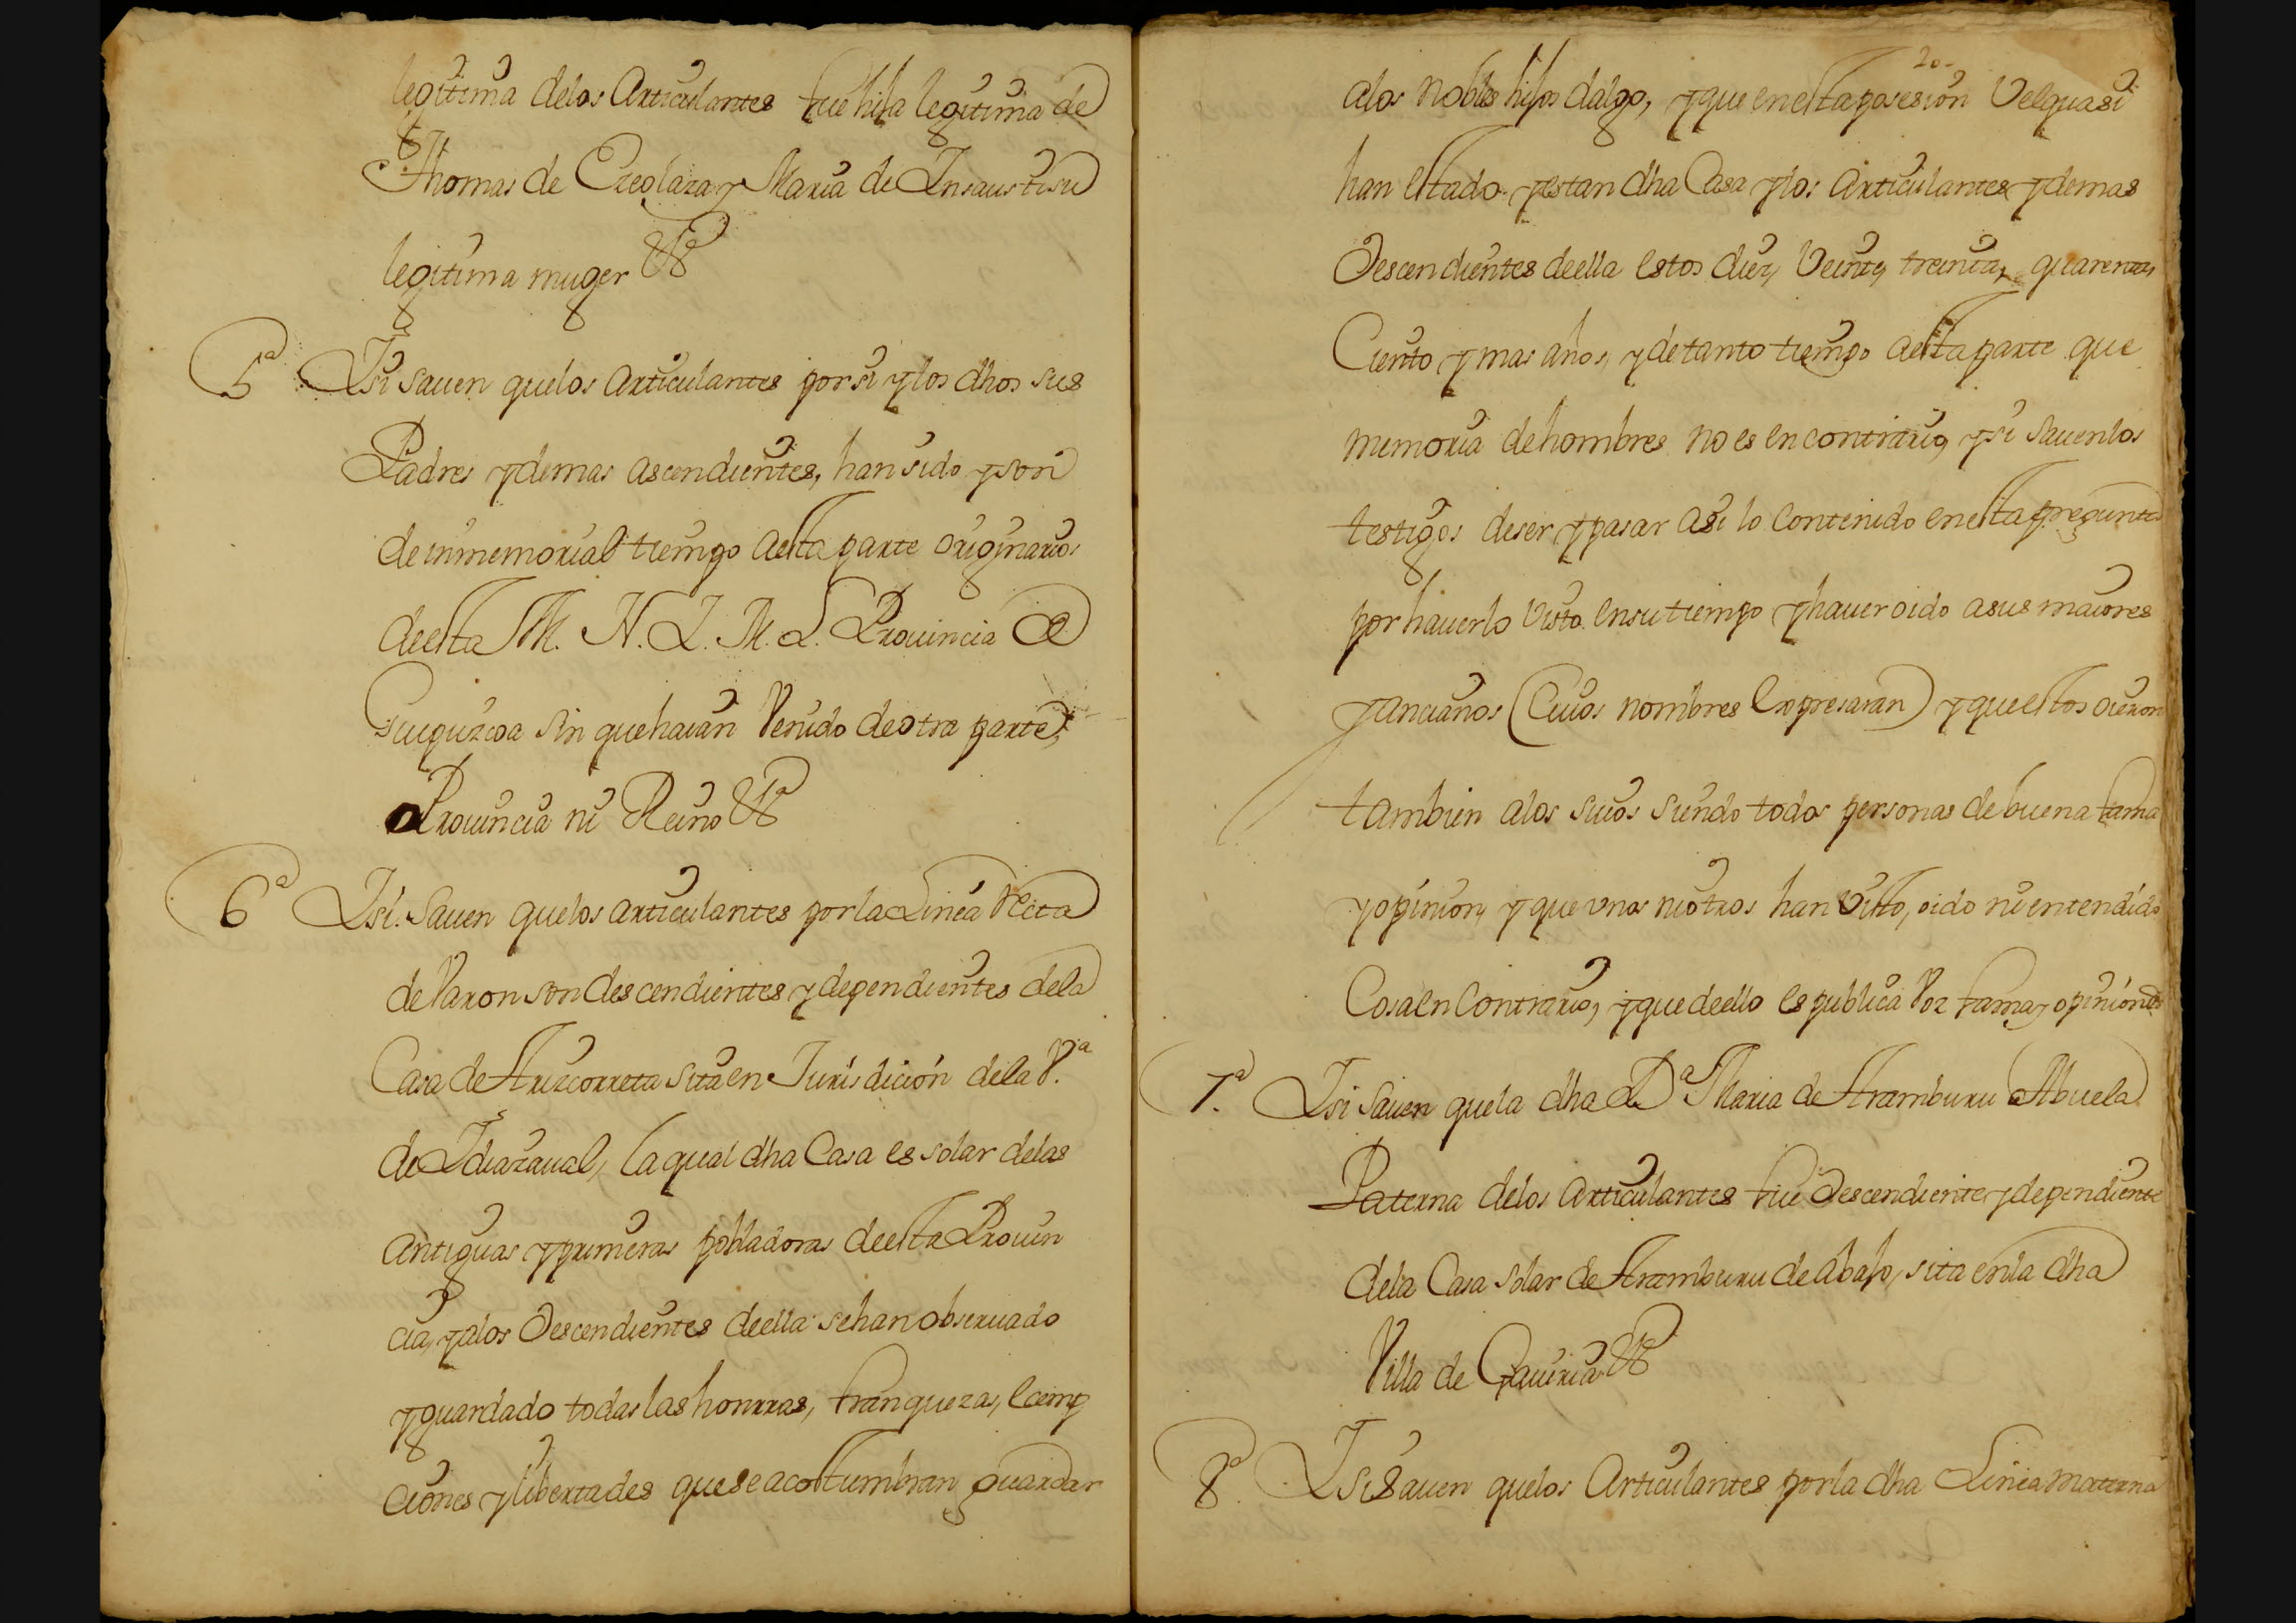 legitima delos Articulantes fue hija legitima de
Thomas de Ezeolaza y Maria de Insausti su
legitima muger Vª
5ª Isi sauen quelos Articulantes por si y los dhos sus
Padres y demas ascendientes, han sido y son
de inmemorial tiempo aesta parte originarios
deesta M. N. L. M. L. Prouincia de
Guipuzcoa sin que haian Venido de otra parte,
o Prouincia ni Reino Vª
6ª Isi sauen quelos articulantes por la Linea Recta
de Varon son descendientes y dependientes dela
Casa de Aruzcorreta sita en Jurisdicion dela Vª
de Idiazaual, la qual dha Casa es solar delas
antiguas y primeras pobladoras deesta Prouin
cia, y alos Descendientes deella sehan obseruado
y guardado todas las honrras, franquezas, Ecemp
ciones y libertades que se acostumbran guardar
20.
alos Nobles hijos dalgo, y que en esta posesion Velquasi
han estado y estan dha Casa y los Articulantes y demas
Descendientes deella estos diez, Veinte, treinta, quarenta,
Ciento y mas años, y de tanto tiempo aesta parte que
memoria de hombres no es en contrario, y si sauen los
testigos deser y pasar asi lo Contenido en esta pregunta
por hauerlo Visto en su tiempo y hauer oido a sus maiores
y ancianos (Cuios nombres Expresaran) y que estos oieron
tambien alos suios siendo todos personas de buena fama
y opinion, y que vnos ni otros han Visto, oido ni entendido
Cosa en Contrario, y que deello es publica Voz fama y opinion
7ª. Isi sauen quela dha Dª Maria de Aramburu Abuela
Paterna delos Articulantes fue Descendiente y dependiente
dela Casa solar de Aramburu de abajo, sita enla dha
Villa de Gauiria Vª
8ª. Isi sauen quelos Articulantes por la dha Linea materna